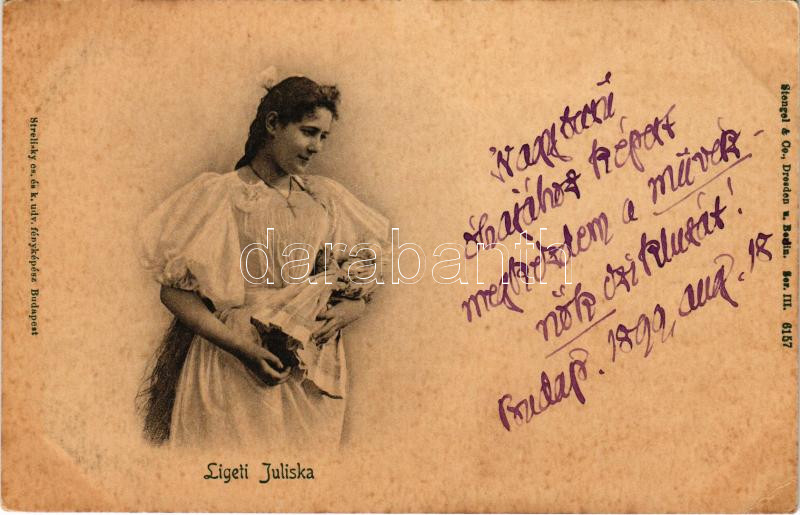 Strelisky cs. és k. udv. fényképész Budapest
Ligeti Juliska
Nagybecsű
óhajához képest
megkezdem a művész-
nők cziklusát!
Budap. 1899, aug. 18
Stengel & Co., Dresden u. Berlin. Ser. III. 6157
darabanth